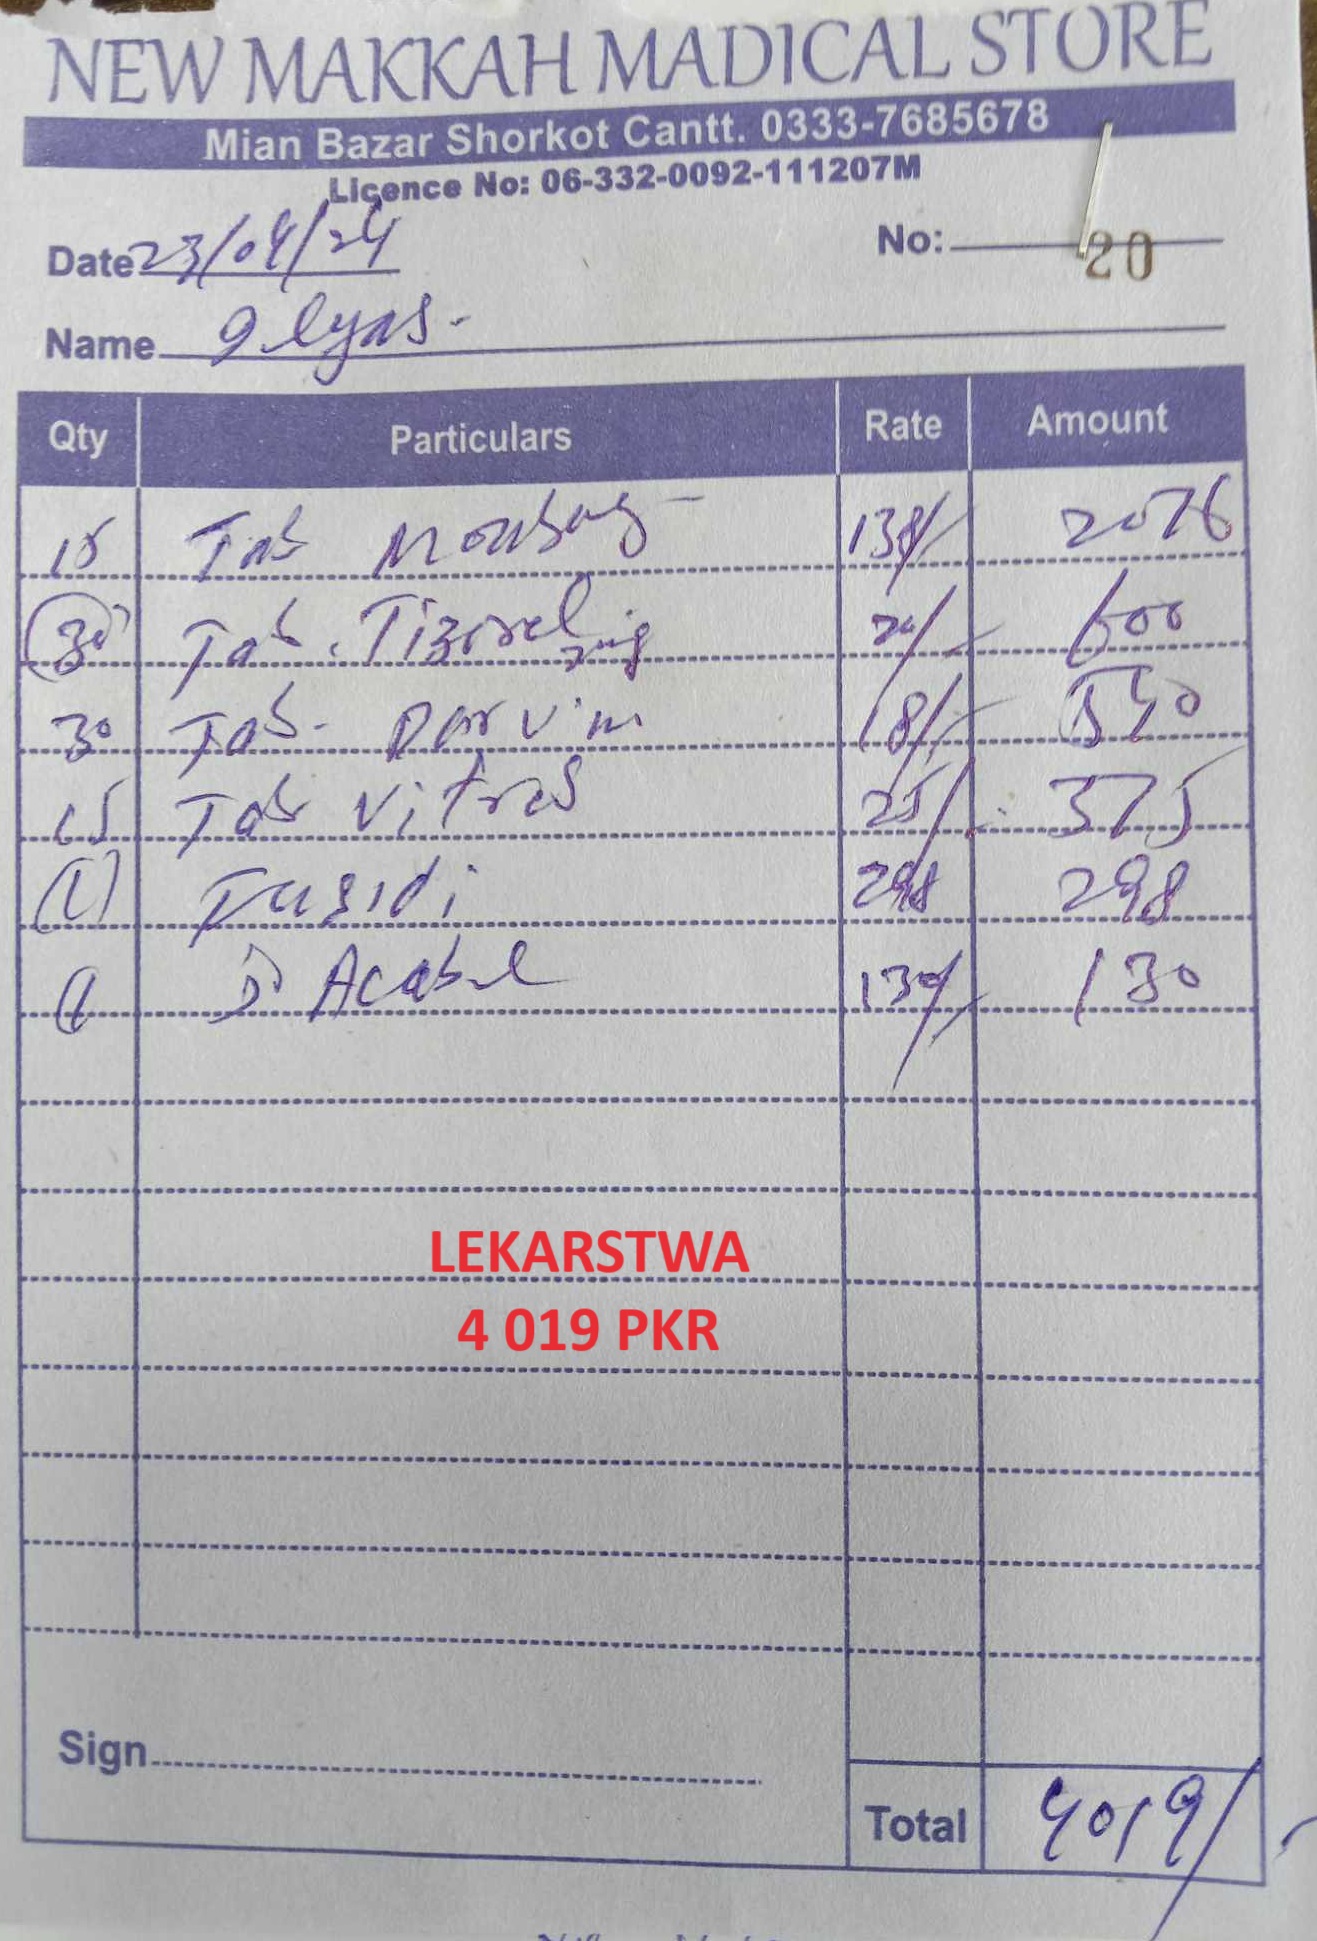 NEW MAKKAH MADICAL STORE
Mian Bazar Shorkot Cantt. 0333-7685678
Licence No: 06-332-0092-111207M
Date 23/04/24 No: 20
Name Ilyas.
Qty Particulars Rate Amount
15 Tab 138/ 2076
30 Tab. 20/ 600
30 Tab. 18/- 540
15 Tab 25/- 375
(1) Fusidi 298 298
1 130/ 130
LEKARSTWA
4 019 PKR
Sign
Total 4019/